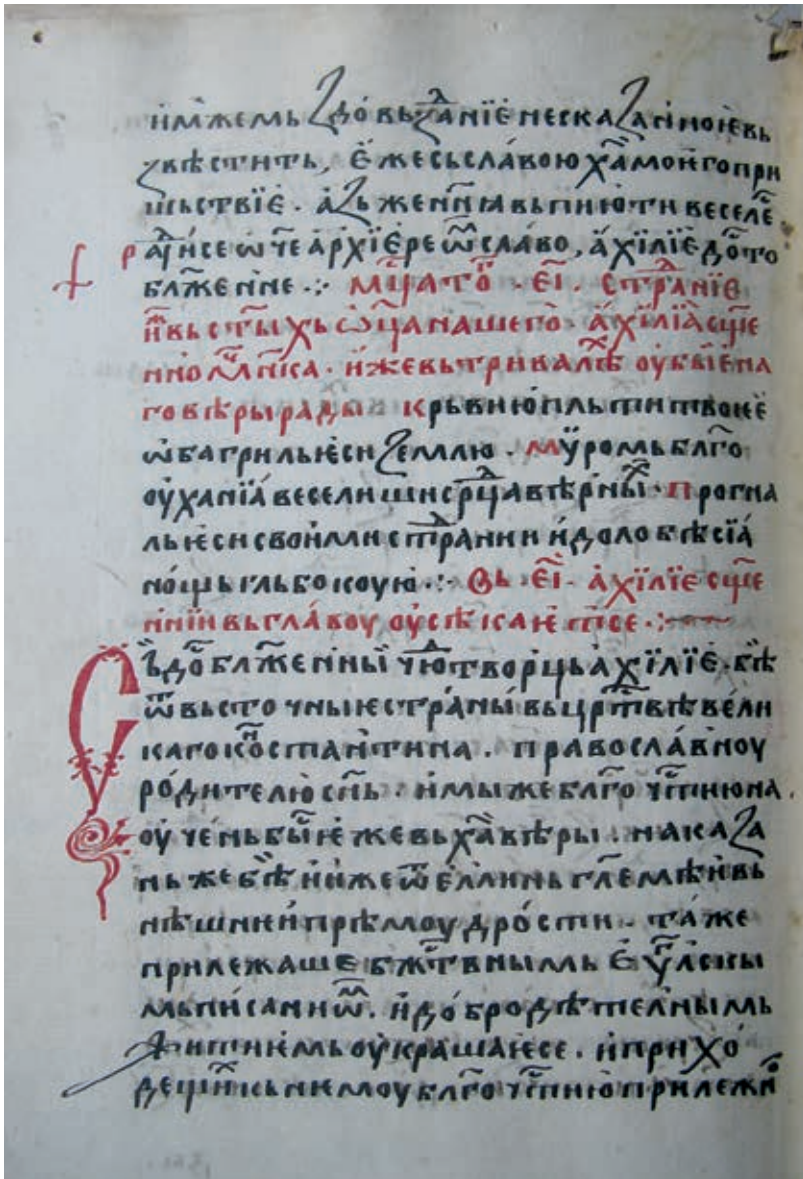 имꙗжемь здо въз̾даниѥ несказан̾ноѥ въ
звѣстить, ѥже сь славою х҃а моѥго при
шьствїѥ · аз̾ь же нн҃ꙗ вьпию ти веселе
раи се ѡч҃е архїѥре ѡм славо, ахїлїѥ до сто
блж҃енне ·:· мц҃а то · еі · страданїѥ
иж вь ст҃ыхь ѡц҃а нашего · ахїлїа сщ҃е
нномч҃нка · иже вь тривалѣх оубиѥна
го вѣры ради крьвию пльти твоѥѥ
ѡбагриль ѥси землю · мѵромь блг҃о
оуханїа веселиши срⷣца вѣрныⷯ · прогна
ль ѥси своими страⷣнии идолобѣсїа
нощь глъбокоую ·:· Вь · еі · ахїлїѥ сщ҃е
нніи вь главоу оусѣкаѥт се ·:·
Сьи доблж҃енныи чю҃творць ахїлїѥ · бѣ
ѿ вьсточныѥ страны вь црⷭ҇твѣ вели
каго коⷩ҇стантина · православноу
родителю сн҃ь · имы же блг҃очⷭ҇тию на
оучень быⷭ҇ и ѥже вь х҃а вѣры · наказа
нь же бѣ и иже ѿ еллинь гл҃емѣи вь
нѣшнии прѣмоудрости · таже
прилежаше бжⷭ҇твнымь еѵⷢ҇лскы
мь писаниѡⷨ · и добродѣтелнымь
житиѥмь оукрашаѥ се · и прихо
дещиⷨ кь нѥмоу блг҃очⷭ҇тию прилежнⷪ